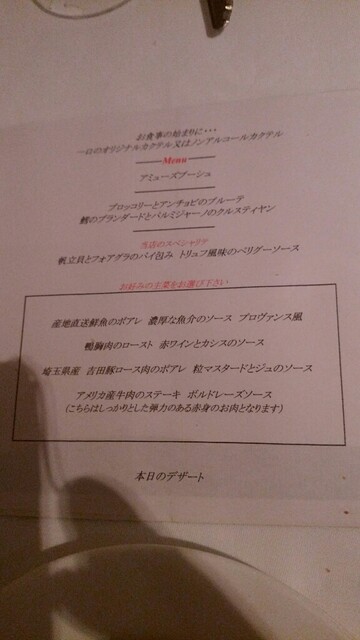 お食事の始まりに・・・
一口のオリジナルカクテル又はノンアルコールカクテル
Menu
アミューズブーシュ
ブロッコリーとアンチョビのブルーテ
鱈のブランダードとパルミジャーノのクルスティヤン
当店のスペシャリテ
帆立貝とフォアグラのパイ包み トリュフ風味のペリグーソース
お好みの主菜をお選び下さい
産地直送鮮魚のポアレ 濃厚な魚介のソース プロヴァンス風
鴨胸肉のロースト 赤ワインとカシスのソース
埼玉県産 吉田豚ロース肉のポアレ 粒マスタードとジュのソース
アメリカ産牛肉のステーキ ボルドレーズソース
(こちらはしっかりとした弾力のある赤身のお肉となります)
本日のデザート